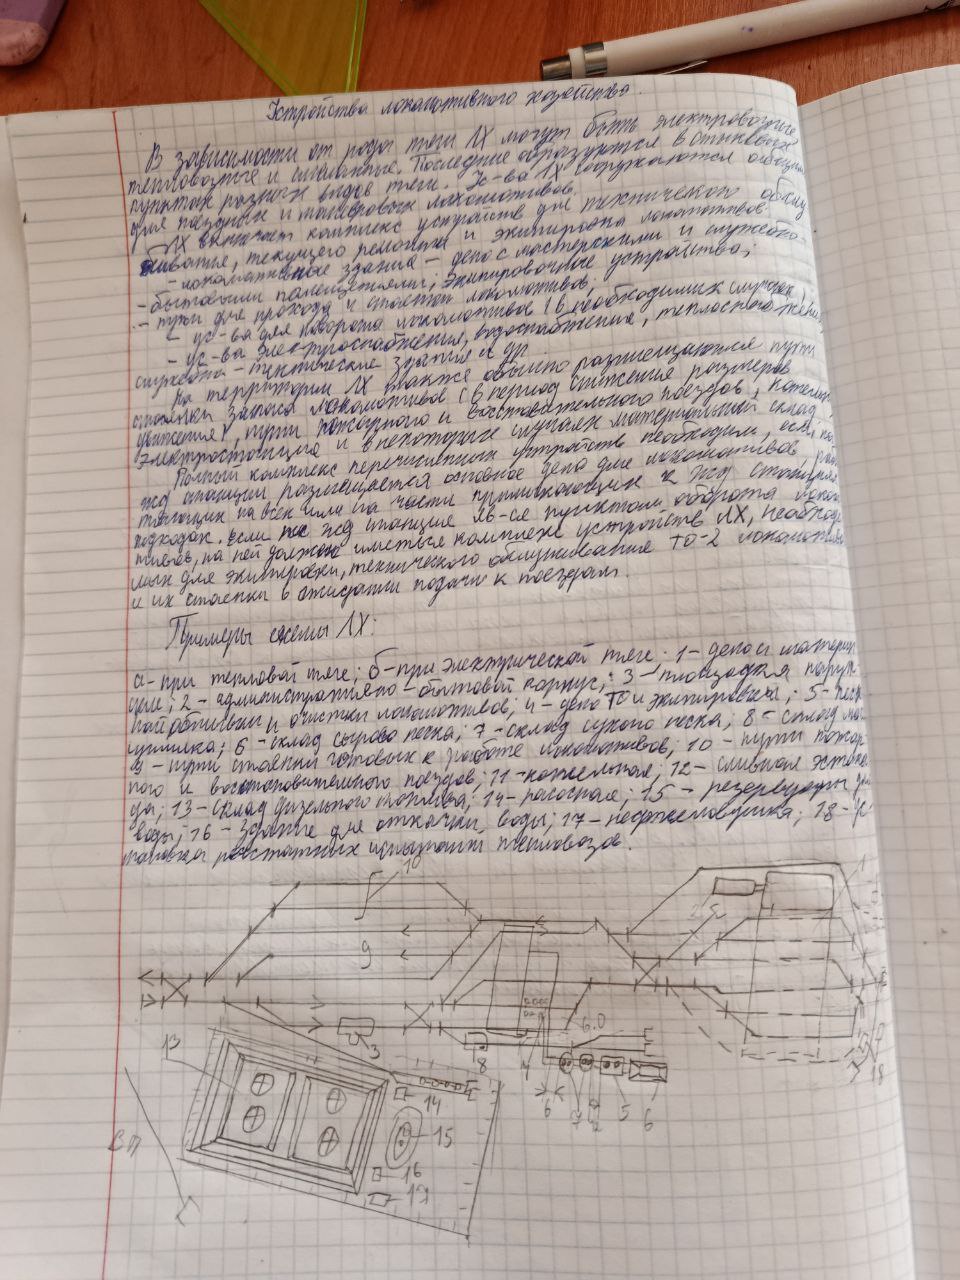 Устройства локомотивного хозяйства.
В зависимости от рода тяги ЛХ могут быть электровозные
тепловозные и смешанные. Последние образуются в стыковых
пунктах разных видов тяги. Ус-ва ЛХ сооружаются общими
для поездных и маневровых локомотивов.
ЛХ включает комплекс устройств для технического обслу
живание, текущего ремонта и экипировка локомотивов.
- локомотивные здания - депо с мастерскими и служебно-
- бытовыми помещениями; экипировочные устройства;
- пути для прохода и стоянки локомотивов,
- ус-ва для поворота локомотивов (в необходимых случаях)
- ус-ва электроснабжения, водоснабжения, теплоснабжения,
служебно-технические здания и др
На территории ЛХ также обычно размещаются пути
стоянки запаса локомотивов (в период снижения размеров
движения), пути пожарного и восстановительного поездов, котельн
электростанция и в некоторых случаях материальный склад.
Полный комплекс перечисленных устройств необходим, если на
жд станции размещается основное депо для локомотивов, рабо
тающих на всех или на части примыкающих к жд станциям
подходах. Если же жд станция яв-ся пунктом оборота локомо
тивов, на ней должен иметься комплекс устройств ЛХ, необходи
мых для экипировки, технического обслуживание ТО-2 локомотивов
и их стоянки в ожидании подачи к поездам.
Примеры схемы ЛХ:
а-при тепловой тяге; б-при электрической тяге. 1-депо с мастерс
2-административно-бытовой корпус; 3-площадка наруж
ной обтивки и очистки локомотивов; 4-депо ТО и экипировки; 5-песк
сушилка; 6-склад сырого песка; 7-склад сухого песка; 8-склад мас
9-пути стоянки готовых к работе локомотивов; 10-пути пожар
ного и восстановительного поездов; 11-котельная; 12-сливная эстака
да; 13-склад дизельного топлива; 14-насосная; 15-резервуары для
воды; 16-здание для откачки воды; 17-нефтеловушка; 18-
реостатных испытаний тепловозов.
10
1
2
9
6.0
13
3
8
4
6
7
5
6
18
14
15
ВП
16
17